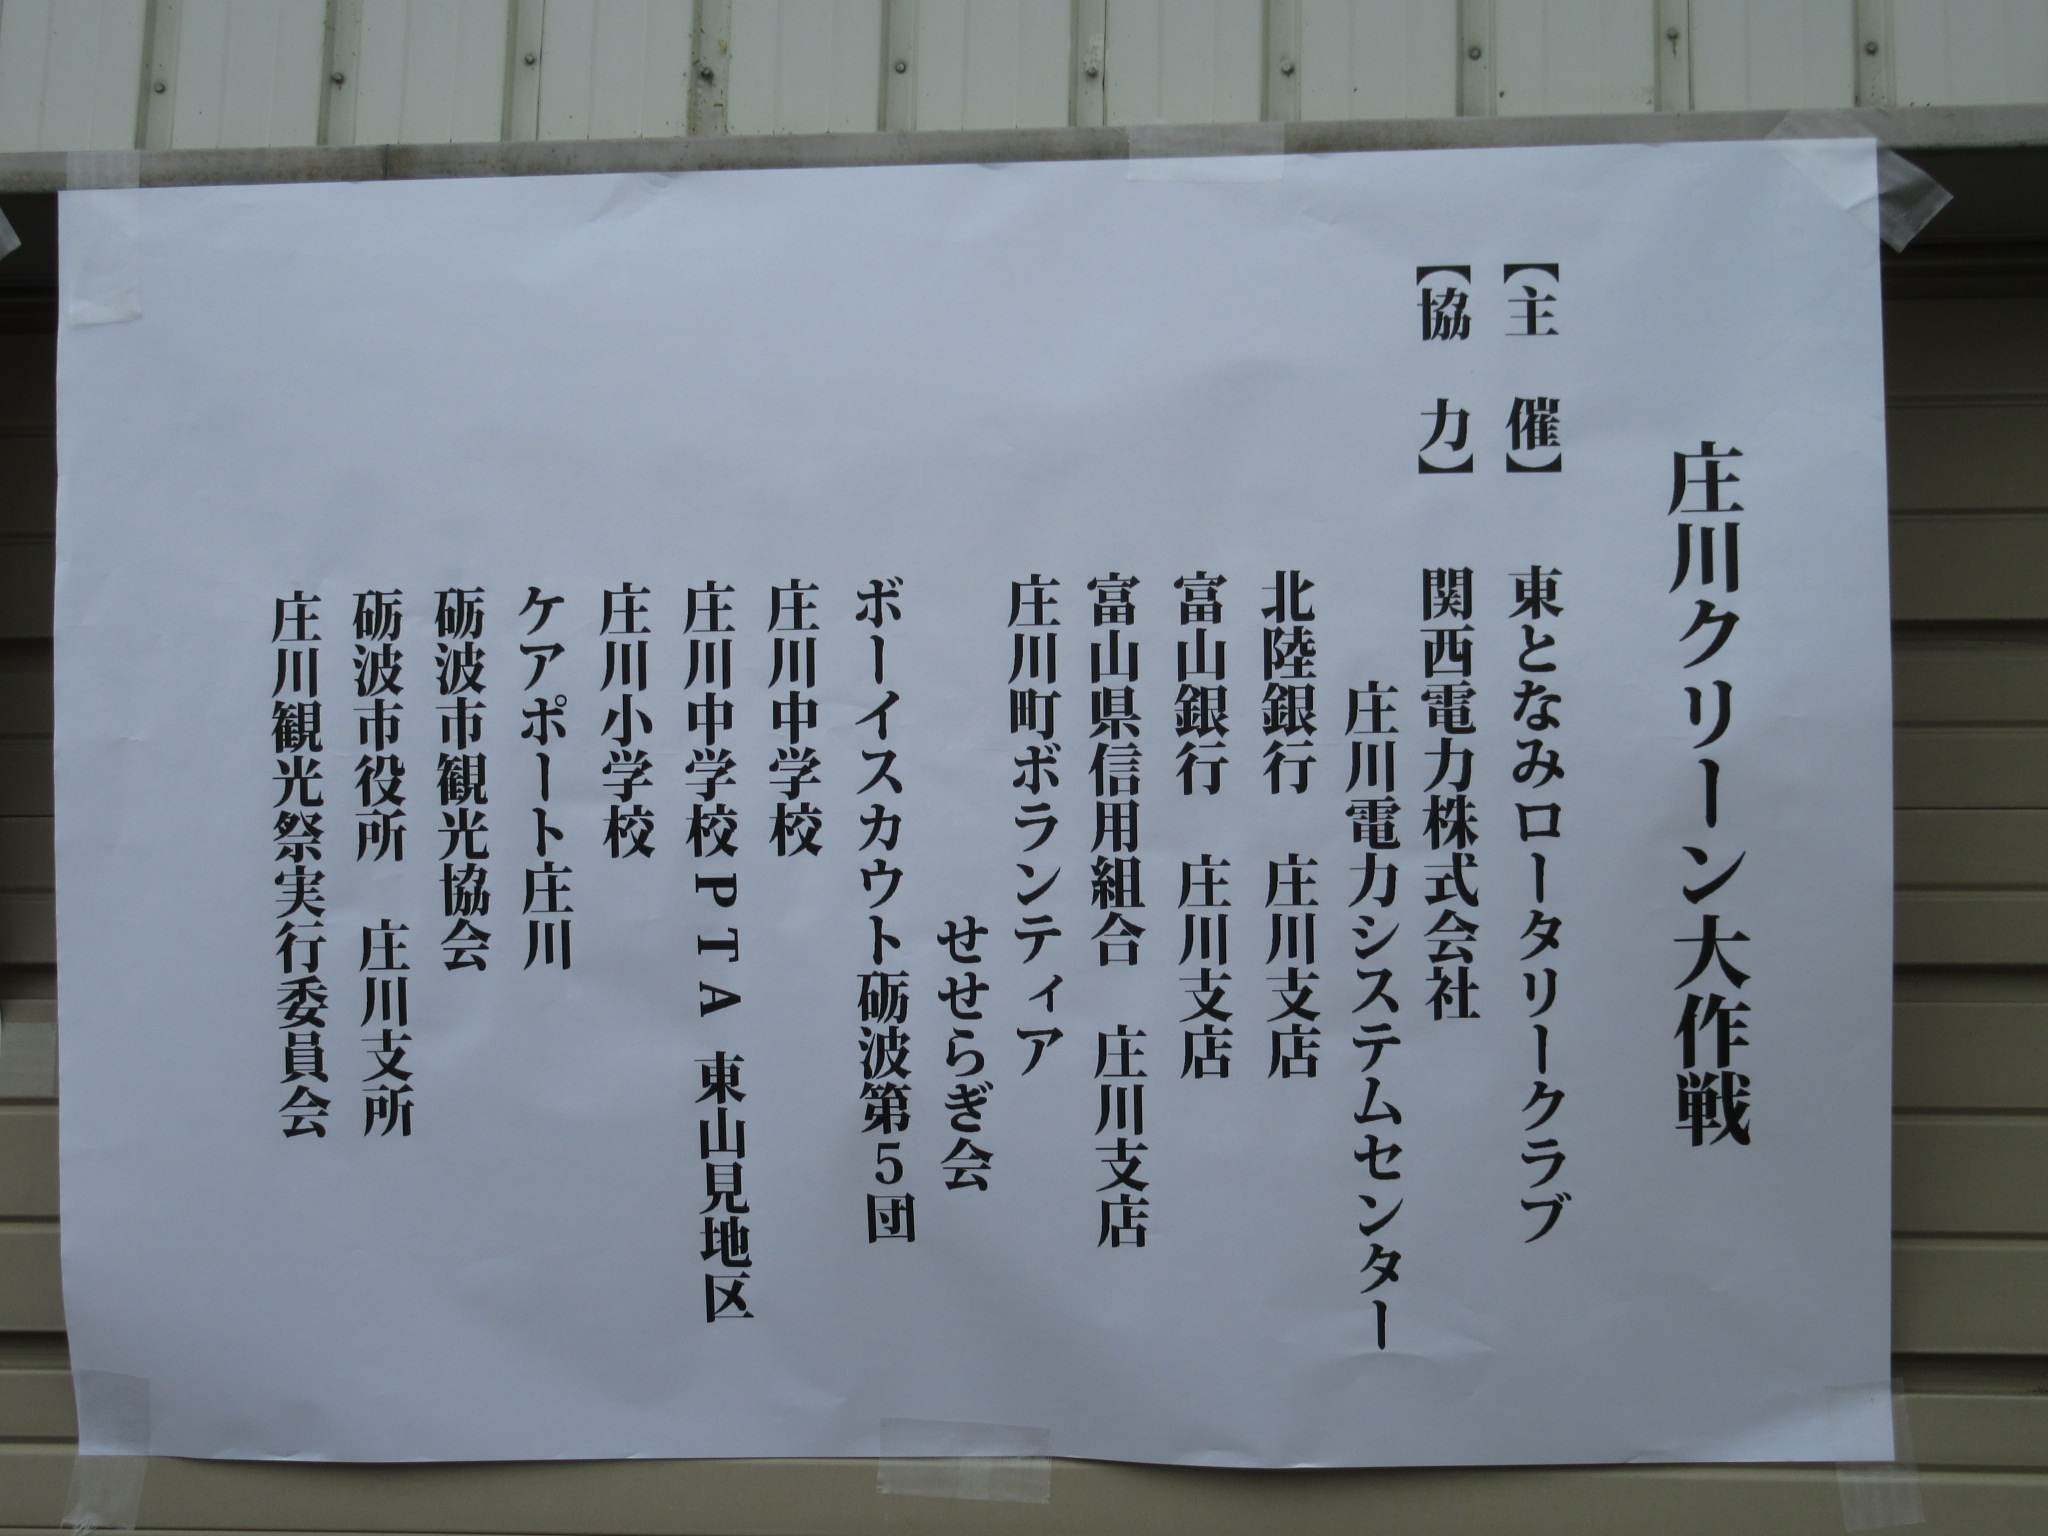 庄川クリーン大作戦
【主　催】　東となみロータリークラブ
【協　力】　関西電力株式会社
庄川電力システムセンター
北陸銀行　庄川支店
富山銀行　庄川支店
富山県信用組合　庄川支店
庄川町ボランティア
せせらぎ会
ボーイスカウト砺波第５団
庄川中学校
庄川中学校ＰＴＡ　東山見地区
庄川小学校
ケアポート庄川
砺波市観光協会
砺波市役所　庄川支所
庄川観光祭実行委員会